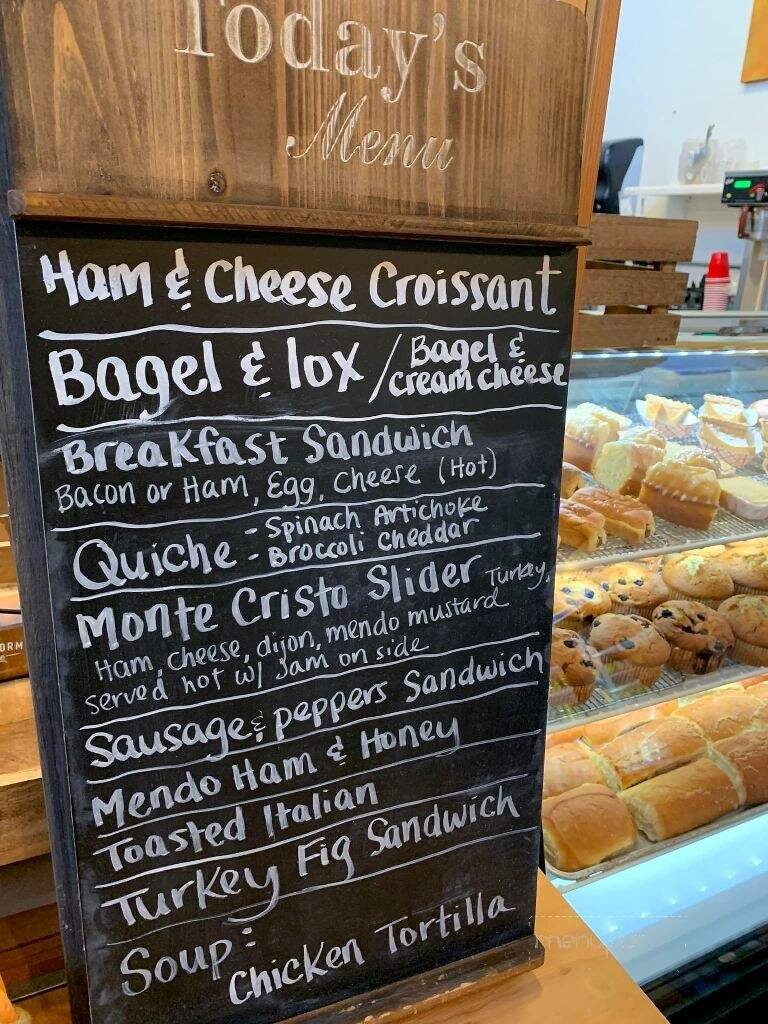 Today's
Menu
Ham & Cheese Croissant
Bagel & lox / Bagel & cream cheese
Breakfast Sandwich
Bacon or Ham, Egg, Cheese (Hot)
Quiche - Spinach Artichoke
- Broccoli Cheddar
Monte Cristo Slider Turkey,
Ham, cheese, dijon, mendo mustard
served hot w/ Jam on side
Sausage & peppers Sandwich
Mendo Ham & Honey
Toasted Italian
Turkey Fig Sandwich
Soup:
Chicken Tortilla